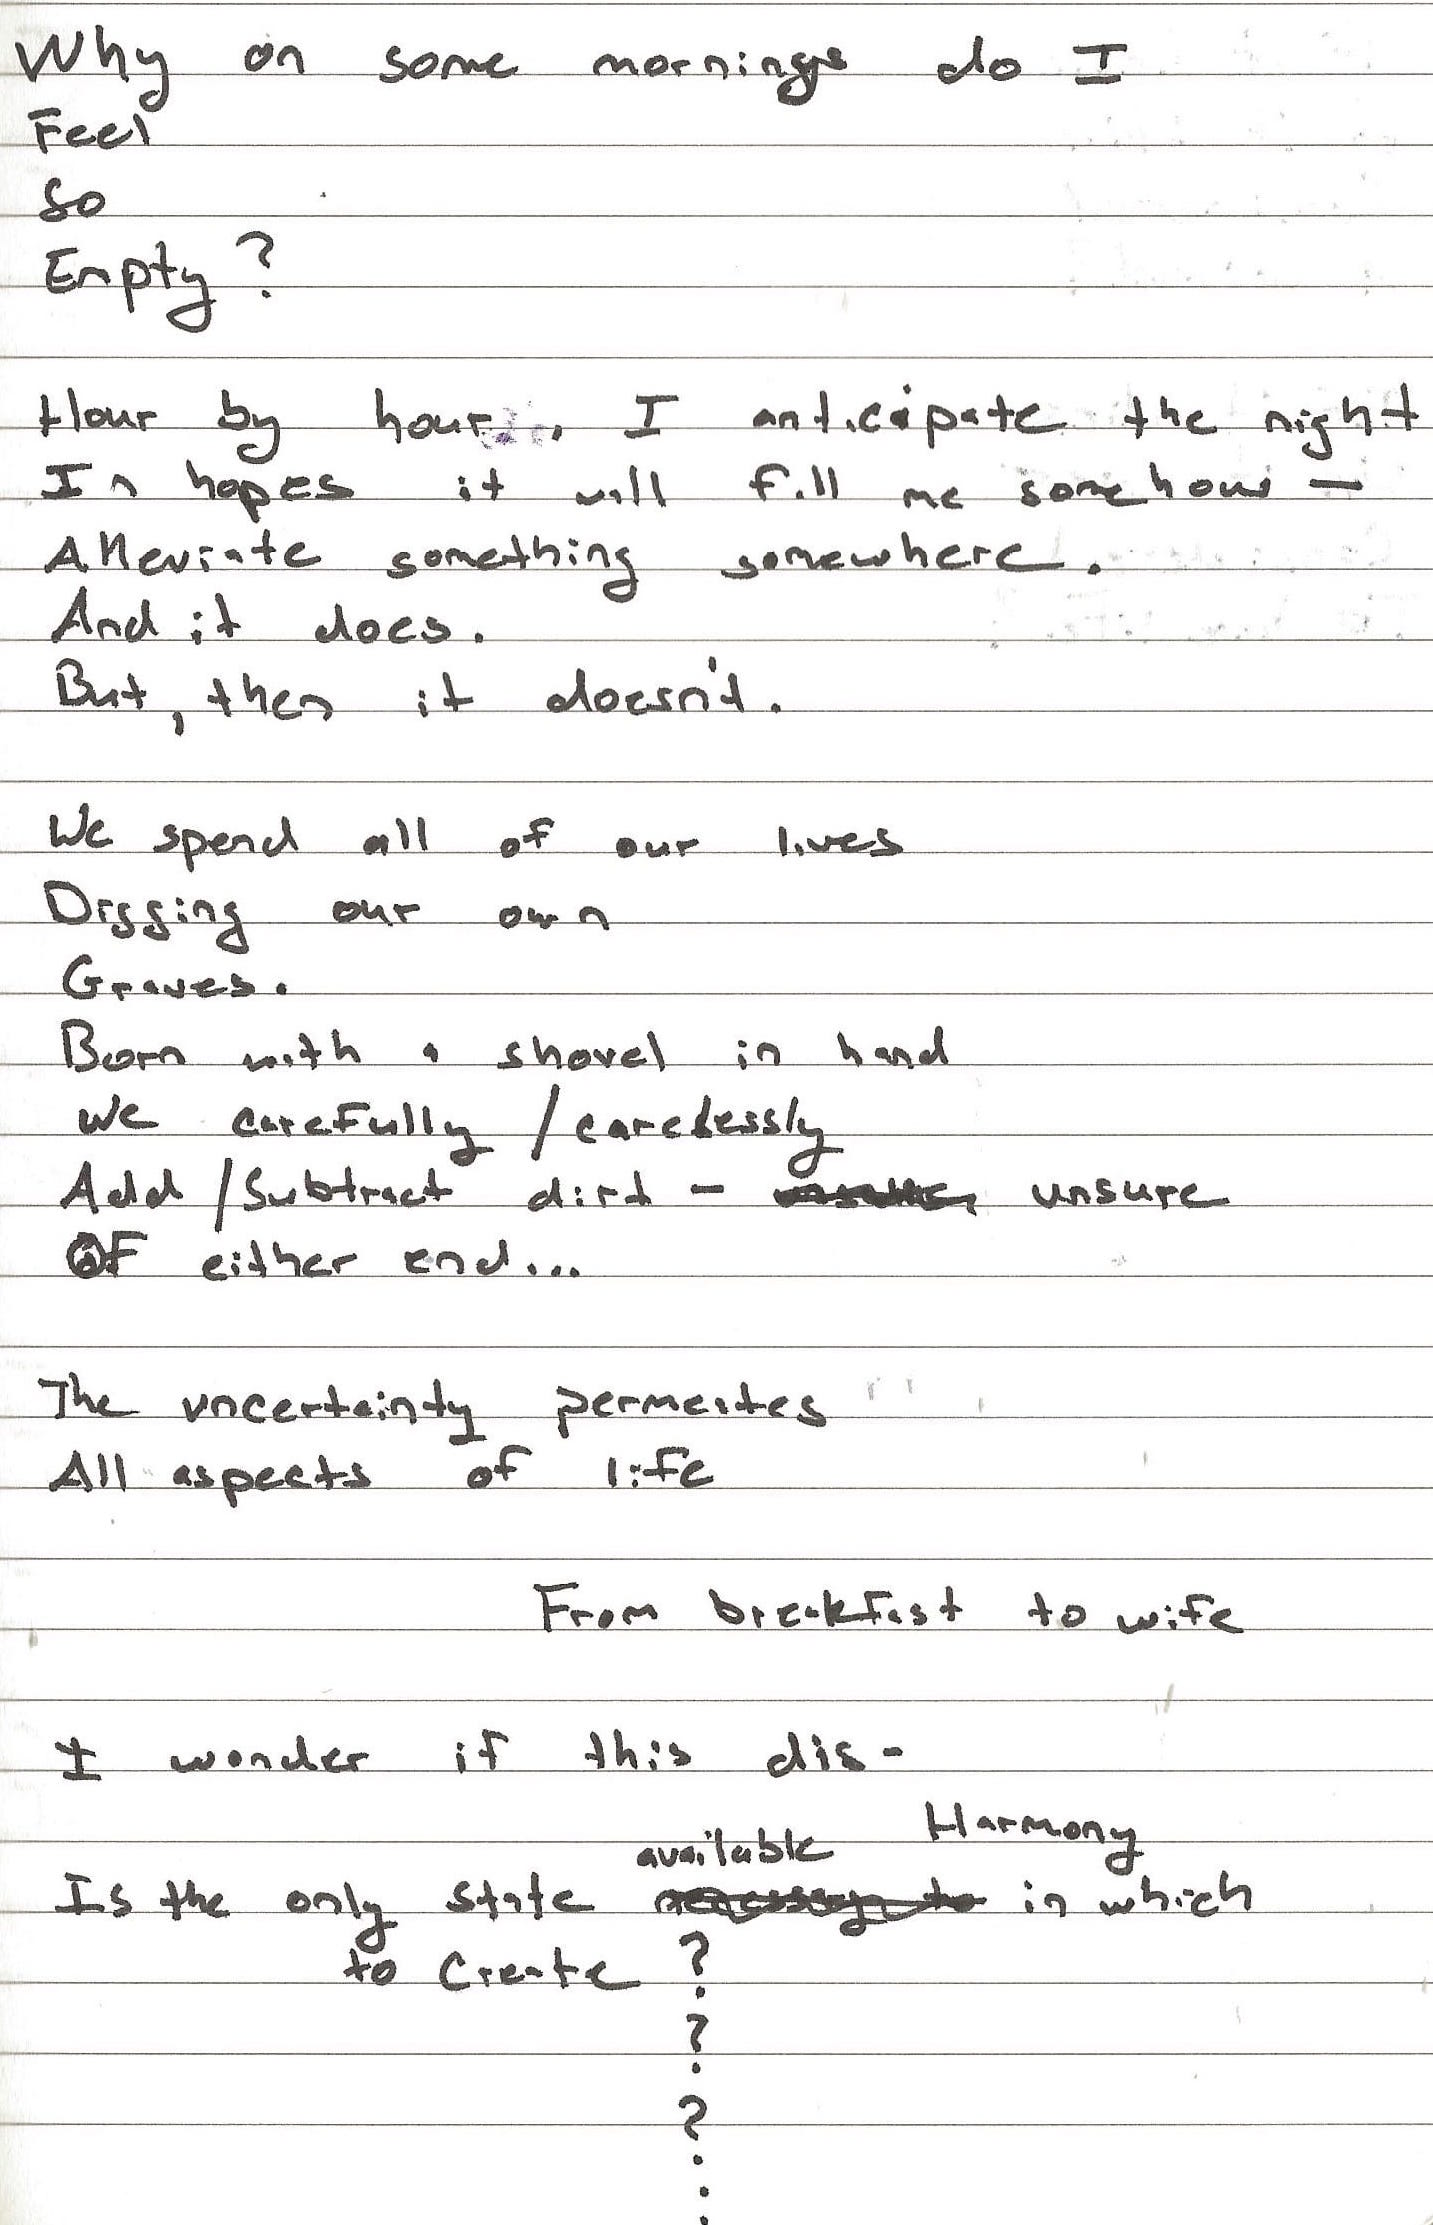 Why on some mornings do I
Feel
So
Empty?
Hour by hour, I anticipate the night
In hopes it will fill me somehow —
Alleviate something somewhere.
And it does.
But, then it doesn't.
We spend all of our lives
Digging our own
Graves.
Born with a shovel in hand
We carefully / carelessly
Add / Subtract dirt - unsure
OF either end...
The uncertainty permeates
All aspects of life
From breakfast to wife
I wonder if this dis-
Harmony
available
Is the only state in which
to create ?
?
?